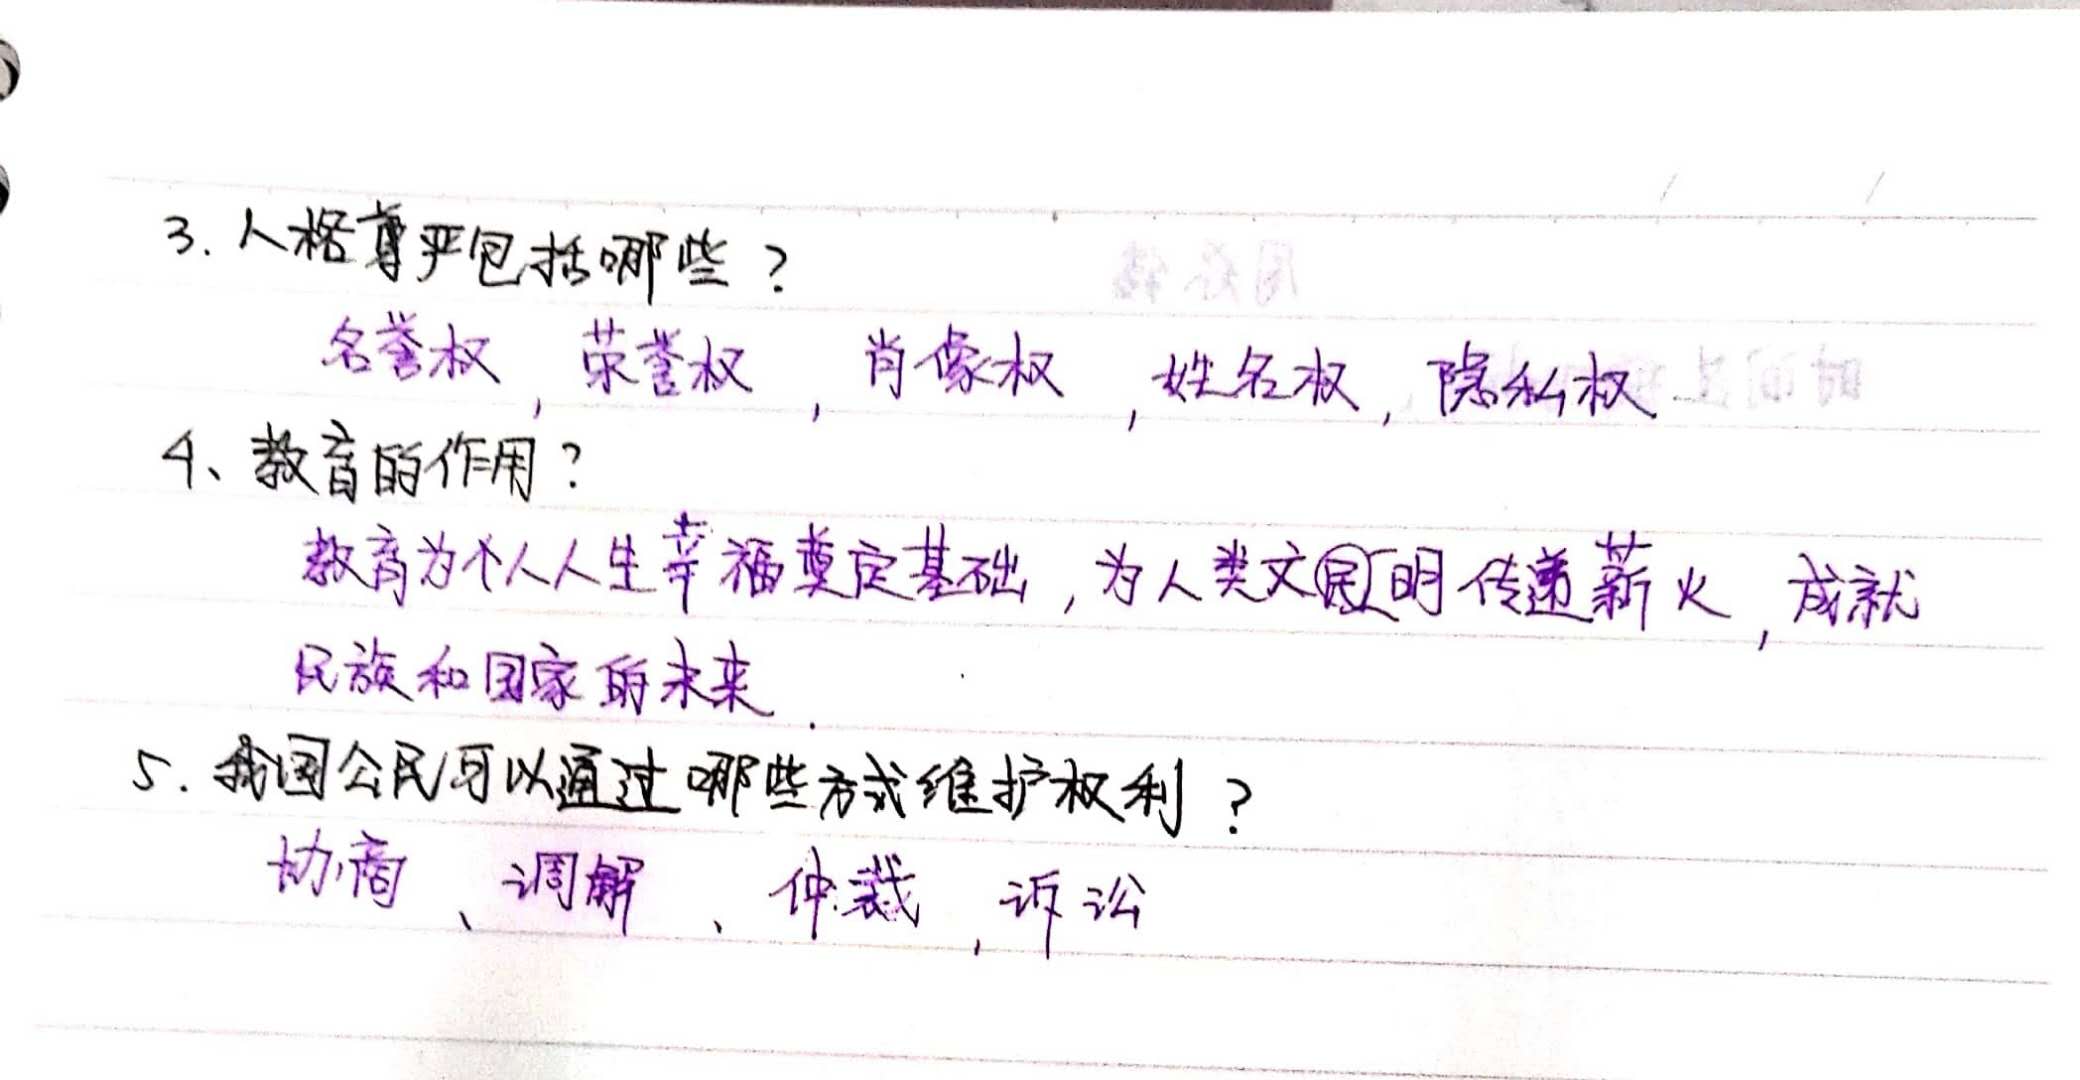 3. 人格尊严包括哪些？
名誉权，荣誉权，肖像权，姓名权，隐私权
4、教育的作用？
教育为个人人生幸福奠定基础，为人类文明传递薪火，成就
民族和国家的未来.
5. 我国公民可以通过哪些方式维护权利？
协商、调解、仲裁，诉讼